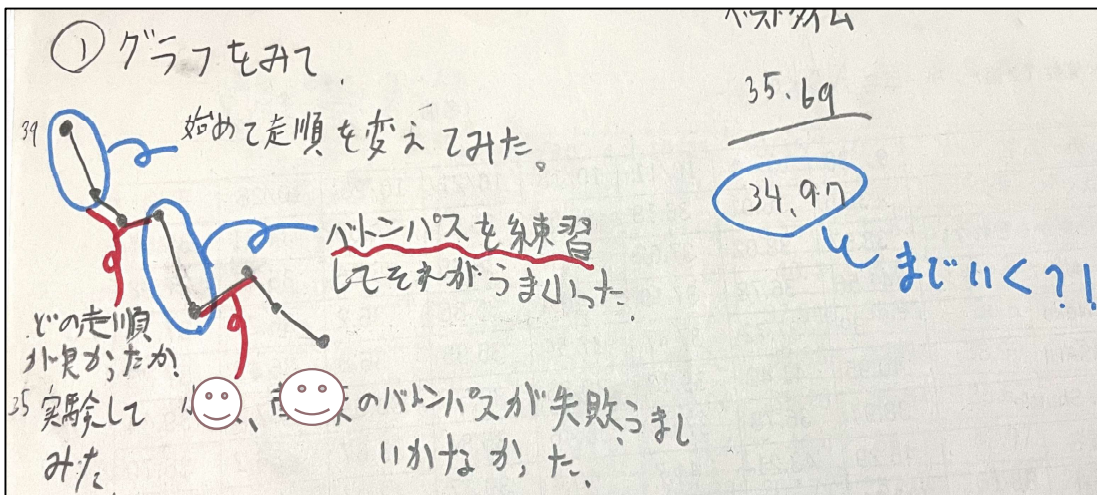 ① グラフをみて、
39
始めて走順を変えてみた。
バトンパスを練習
してそれがうまくいった。
どの走順
が良かったか?
35 実験して
みた
のバトンパスが失敗、うまし
いかなかった、
ベストタイム
35.69
34.97
まで いく?!